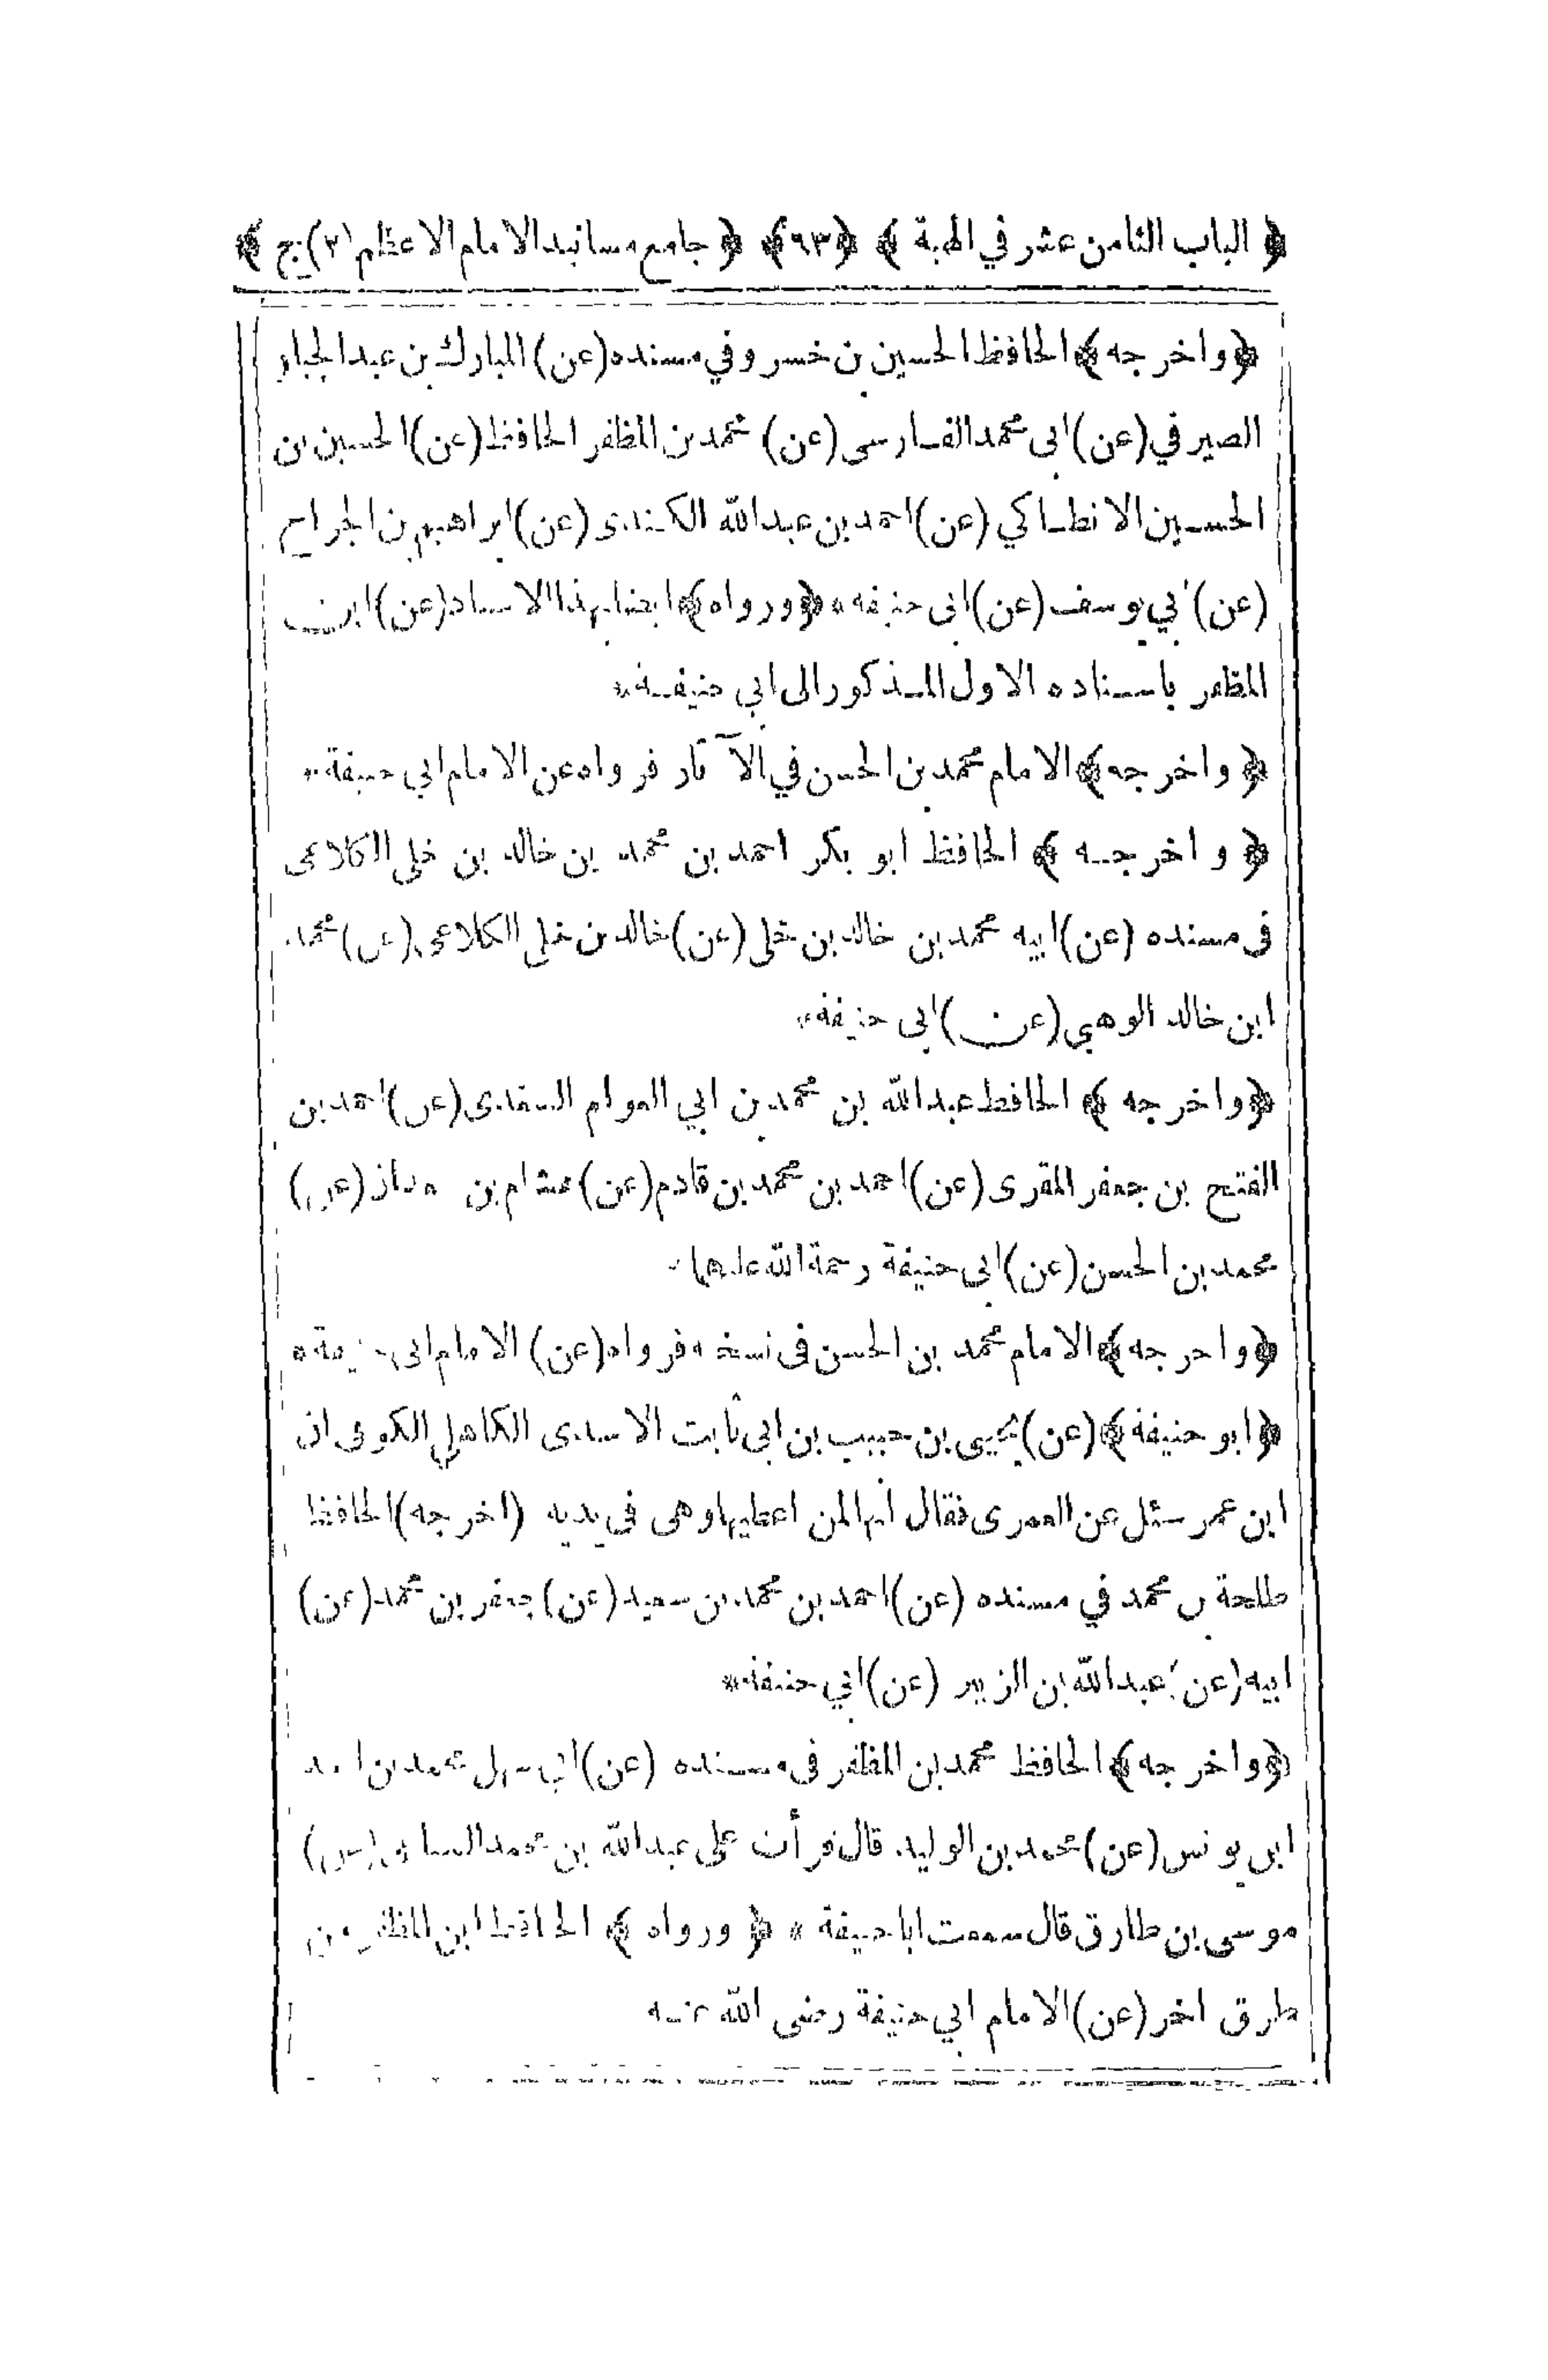 ﴿ الباب الثامن عشر في الهبة ﴾ ﴿٩٣﴾ ﴿ جامع مسانيد الامام الاعظم (٢) ج ﴾
﴿واخرجه﴾ الحافظ الحسين بن خسرو في مسنده (عن) المبارك بن عبد الجبار
الصيرفي (عن) ابى محمد الفارسى (عن) محمد بن المظفر الحافظ (عن) الحسين بن
الحسين الانطاكي (عن) احمد بن عبد الله الكندى (عن) ابراهيم بن الجراح
(عن) ابي يوسف (عن) ابى حنيفة * ﴿ورواه﴾ ايضا بهذا الاسناد (عن) ابن
المظفر باسناده الاول المذكور الى ابي حنيفة *
﴿واخرجه﴾ الامام محمد بن الحسن في الآثار فرواه عن الامام ابي حنيفة *
﴿واخرجه﴾ الحافظ ابو بكر احمد بن محمد بن خالد بن خلى الكلاعى
فى مسنده (عن) ابيه محمد بن خالد بن خلى (عن) خالد بن خلى الكلاعى (عن) محمد
ابن خالد الوهبي (عن) ابى حنيفة *
﴿واخرجه﴾ الحافظ عبد الله بن محمد بن ابي العوام السغدى (عن) احمد بن
الفتح بن جعفر المقرى (عن) احمد بن محمد بن قادم (عن) هشام بن (عن)
محمد بن الحسن (عن) ابى حنيفة رحمة الله عليهما *
﴿واخرجه﴾ الامام محمد بن الحسن فى نسخته فرواه (عن) الامام ابى حنيفة *
﴿ابو حنيفة﴾ (عن) يحيى بن حبيب بن ابى ثابت الاسدى الكاهلي الكوفى ان
ابن عمر سئل عن العمرى فقال انها لمن اعطيها وهى فى يديه (اخرجه) الحافظ
طلحة بن محمد في مسنده (عن) احمد بن محمد بن سعيد (عن) جعفر بن محمد (عن)
ابيه (عن) عبد الله بن الزبير (عن) ابي حنيفة *
﴿واخرجه﴾ الحافظ محمد بن المظفر فى مسنده (عن) ابي سهل محمد بن احمد
ابن يونس (عن) محمد بن الوليد قال قرأت على عبد الله بن محمد (عن)
موسى بن طارق قال سمعت ابا حنيفة * ﴿ورواه﴾ الحافظ ابن المظفر من
طرق اخر (عن) الامام ابي حنيفة رضى الله عنه